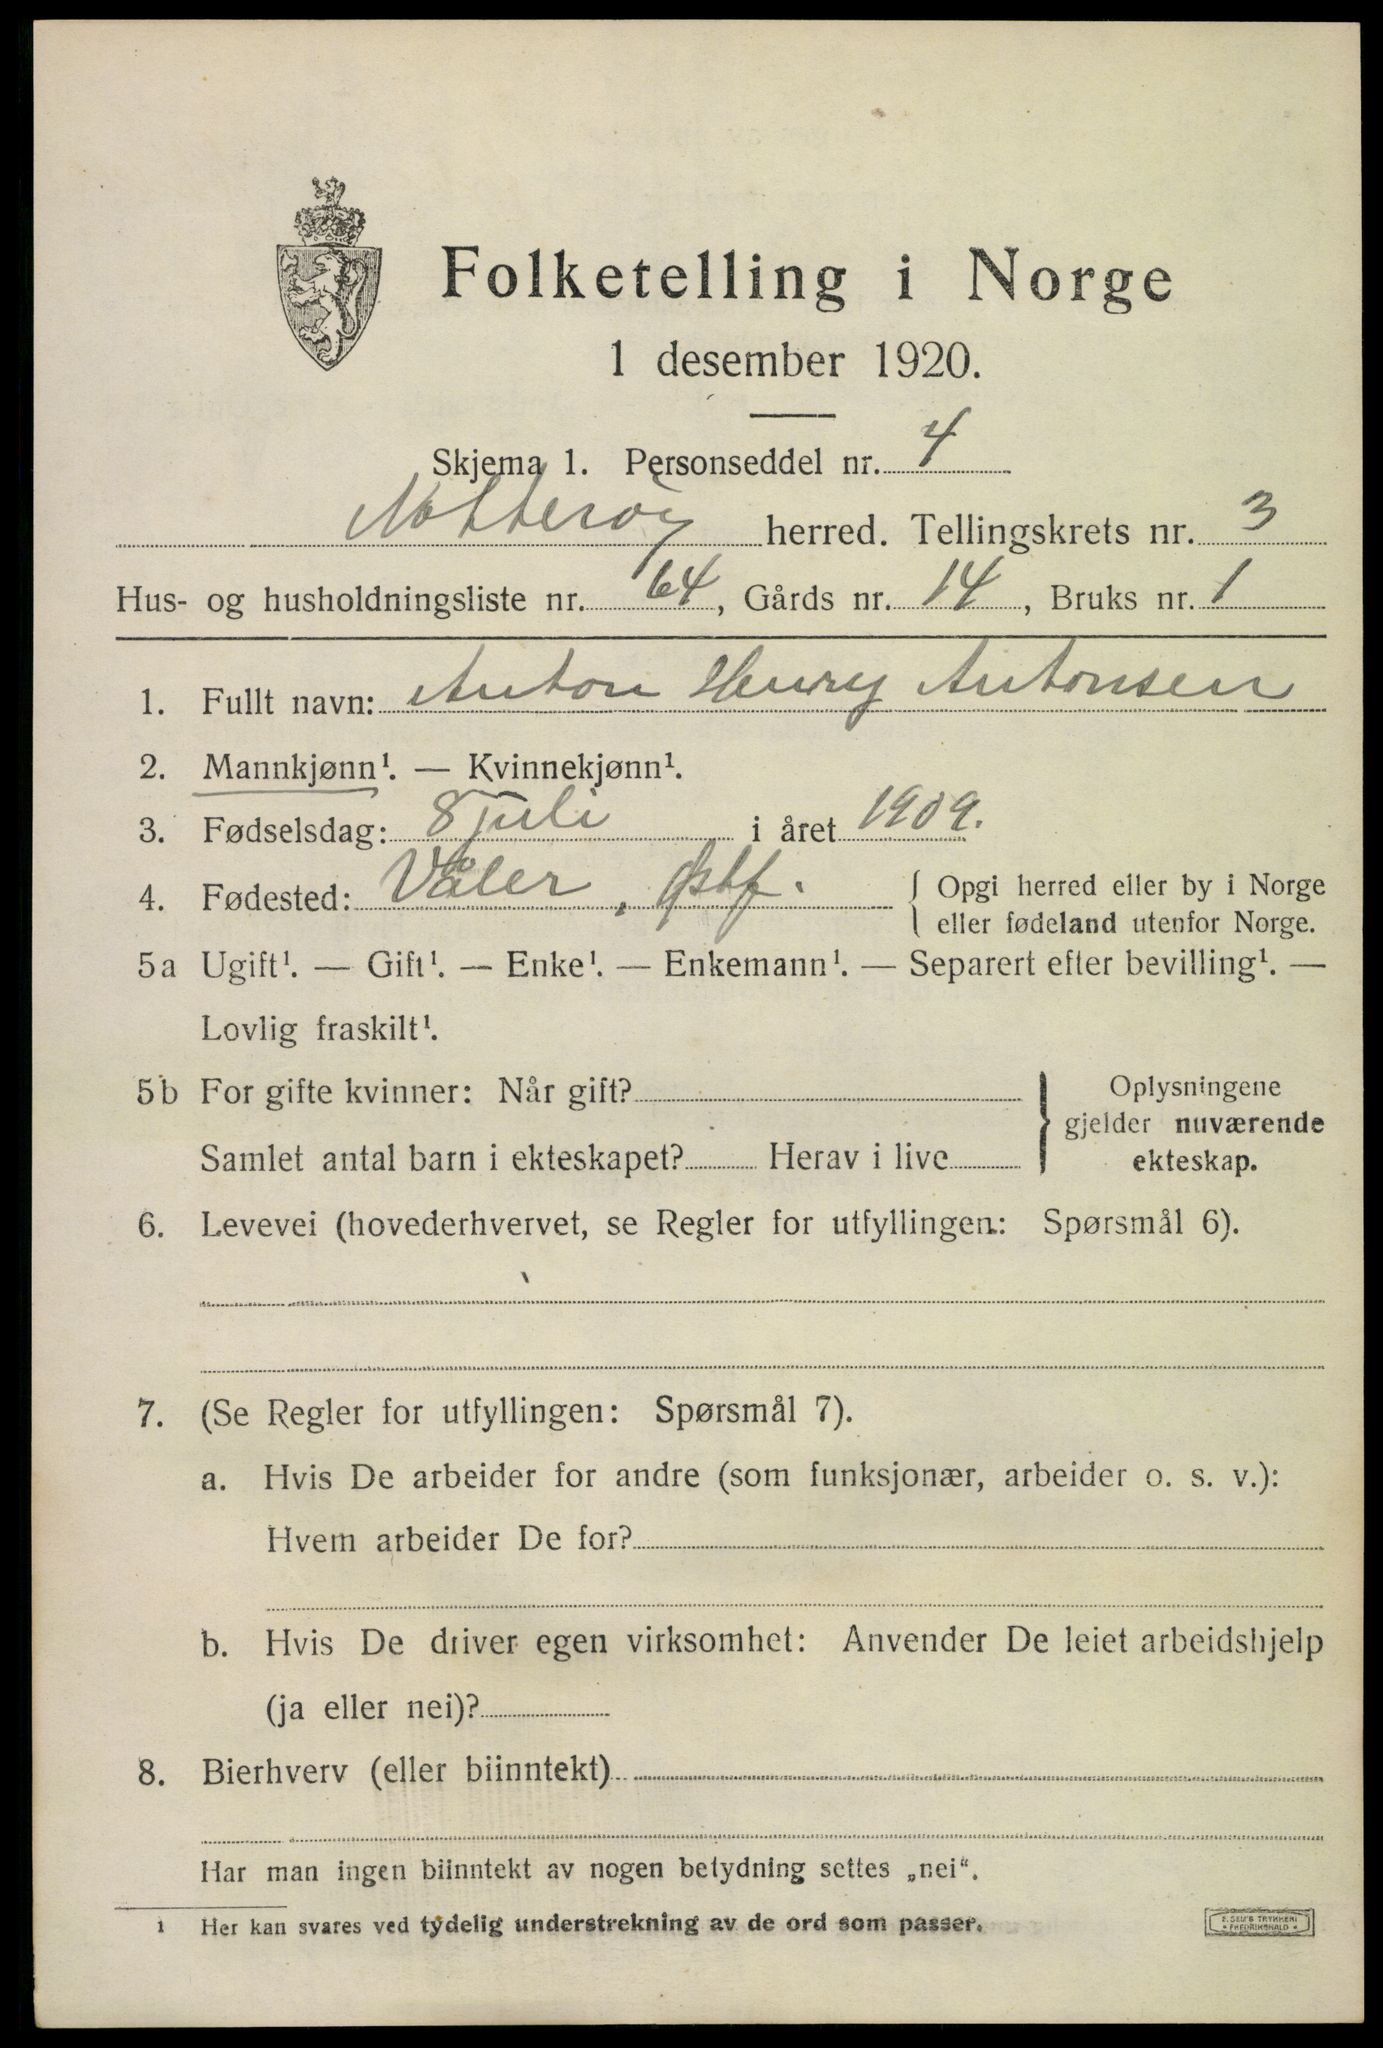 Folketelling i Norge
1 desember 1920.
Skjema 1. Personseddel nr. 4
Nøtterøy herred. Tellingskrets nr. 3
Hus- og husholdningsliste nr. 64, Gårds nr. 14, Bruks nr. 1
1. Fullt navn: Anton Henry Antonsen
2. Mannkjønn¹. — Kvinnekjønn¹.
3. Fødselsdag: 8 juli i året 1909.
4. Fødested: Våler, Østf. { Opgi herred eller by i Norge
eller fødeland utenfor Norge.
5a Ugift¹. — Gift¹. — Enke¹. — Enkemann¹. — Separert efter bevilling¹. —
Lovlig fraskilt¹.
5b For gifte kvinner: Når gift?
Samlet antal barn i ekteskapet? Herav i live
} Oplysningene
gjelder nuværende
ekteskap.
6. Levevei (hovederhvervet, se Regler for utfyllingen: Spørsmål 6).
7. (Se Regler for utfyllingen: Spørsmål 7).
a. Hvis De arbeider for andre (som funksjonær, arbeider o. s. v.):
Hvem arbeider De for?
b. Hvis De driver egen virksomhet: Anvender De leiet arbeidshjelp
(ja eller nei)?
8. Bierhverv (eller biinntekt)
Har man ingen biinntekt av nogen betydning settes „nei“.
1 Her kan svares ved tydelig understrekning av de ord som passer.
E. SEM'S TRYKKERI
• FREDRIKSHALD •